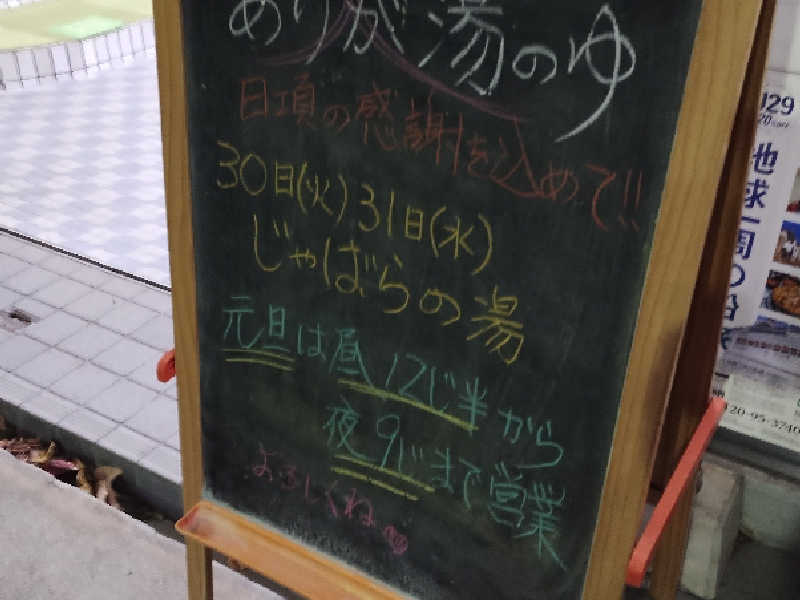 ありが湯のゆ
日項の感謝を込めて!!
30日(火)31日(水)
じゃばらの湯
元旦は昼12じ半から
夜9じまで営業
よろしくね♡
地球一周の船
120-95-3740